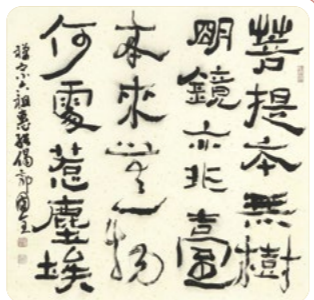 菩提本無樹
明鏡亦非臺
本來無一物
何處惹塵埃
禪宗六祖惠能偈